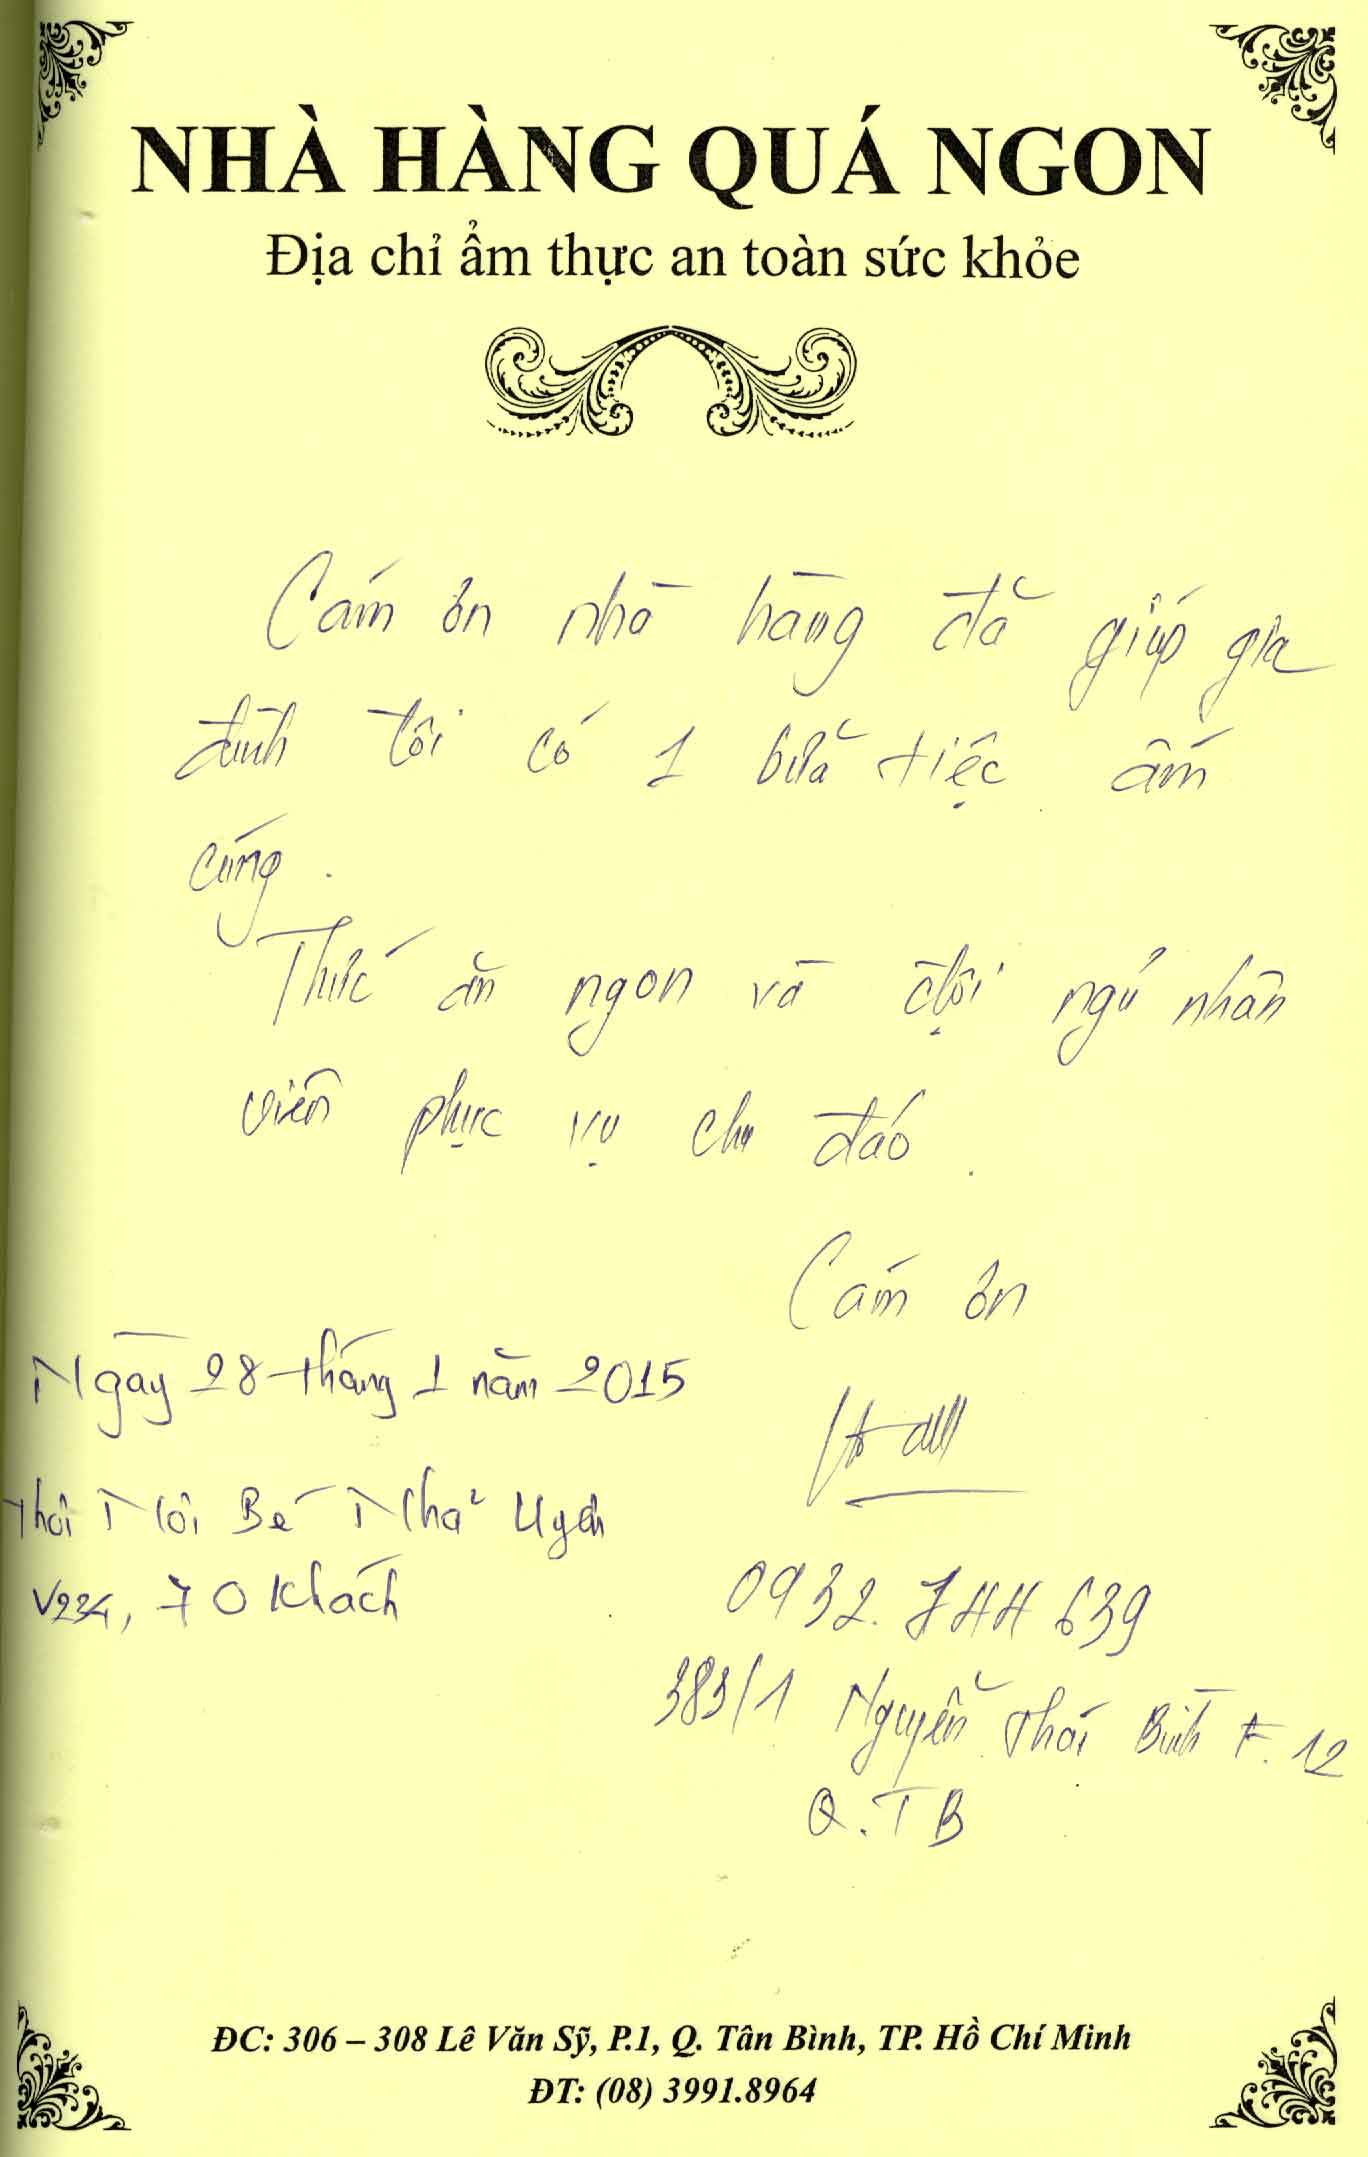 NHÀ HÀNG QUÁ NGON
Địa chỉ ẩm thực an toàn sức khỏe
Cám ơn nhà hàng đã giúp gia
đình tôi có 1 bữa tiệc ấm
cúng.
Thức ăn ngon và đội ngủ nhân
viên phục vụ chu đáo.
Cám ơn
Ngày 28 tháng 1 năm 2015
Thôi Nôi Bé Nhã Uyên
V234, 70 Khách
0932. 744 639
383/1 Nguyễn Thái Bình F. 12
Q. TB
ĐC: 306 – 308 Lê Văn Sỹ, P.1, Q. Tân Bình, TP. Hồ Chí Minh
ĐT: (08) 3991.8964